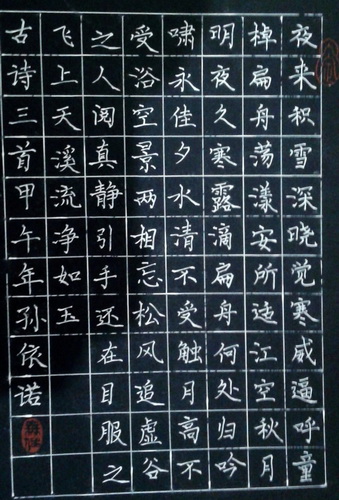 夜来积雪深晓觉寒威逼呼童
棹扁舟荡漾安所适江空秋月
明夜久寒露滴扁舟何处归吟
啸永佳夕水清不受触月高不
受浴空景两相忘松风追虚谷
之人阅真静引手还在目服之
飞上天溪流净如玉
古诗三首甲午年孙依诺